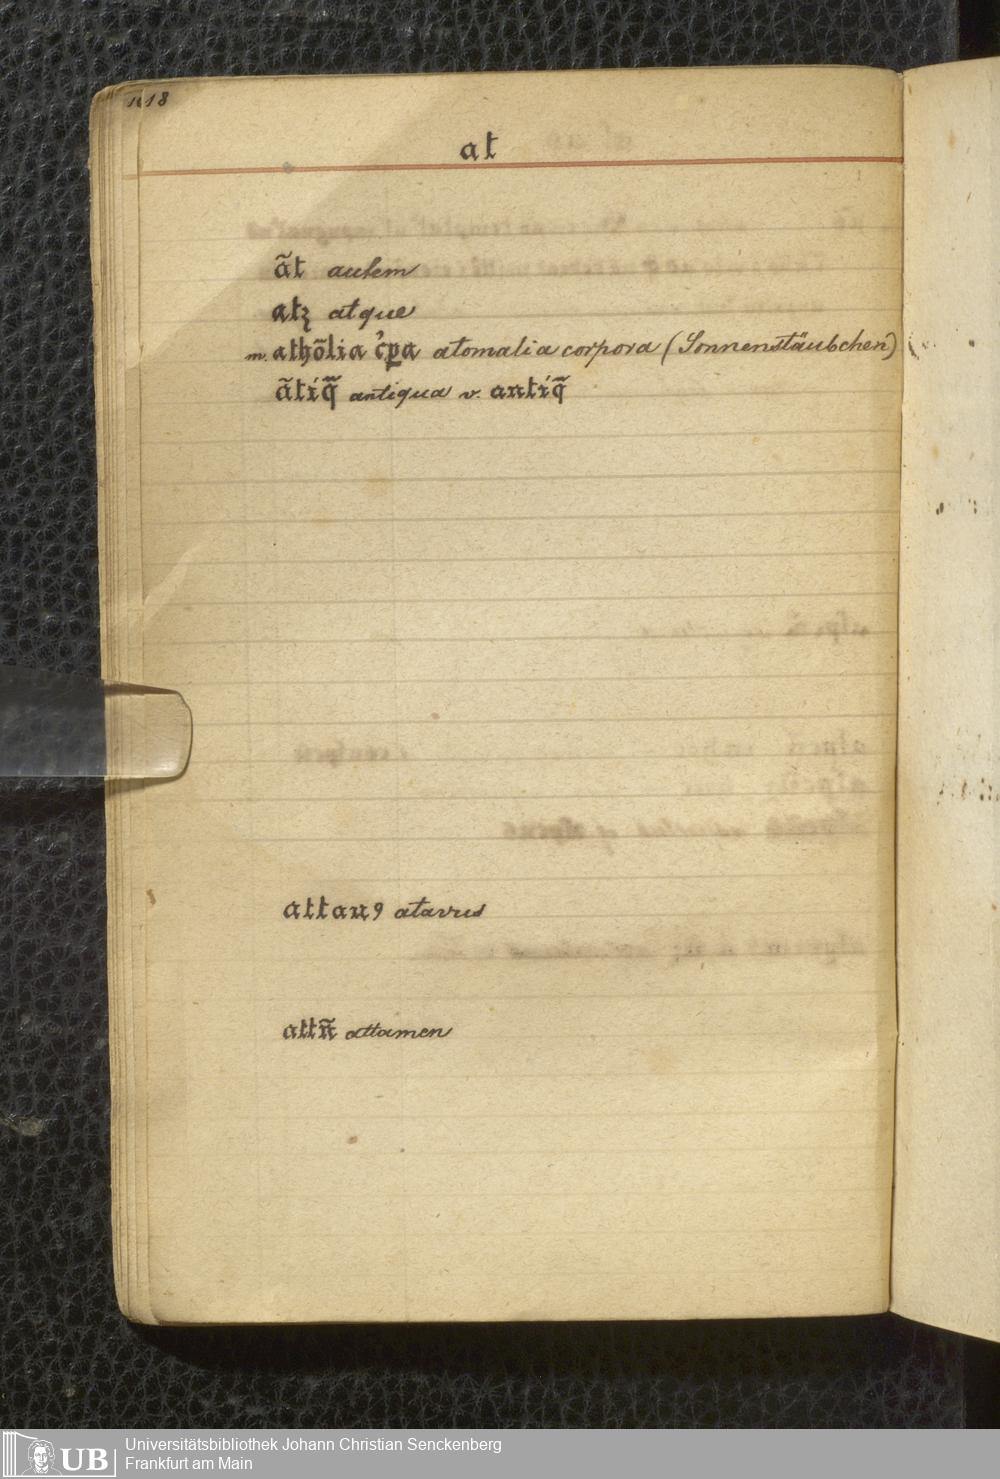 at
ãt autem
atꝫ atque
m. athõlia c̓ꝑa atomalia corpora (Sonnenstäubchen)
ãtiq̃ antiqua v. antiq̃
attauꝰ atavus
attñ attamen
UB
Universitätsbibliothek Johann Christian Senckenberg
Frankfurt am Main